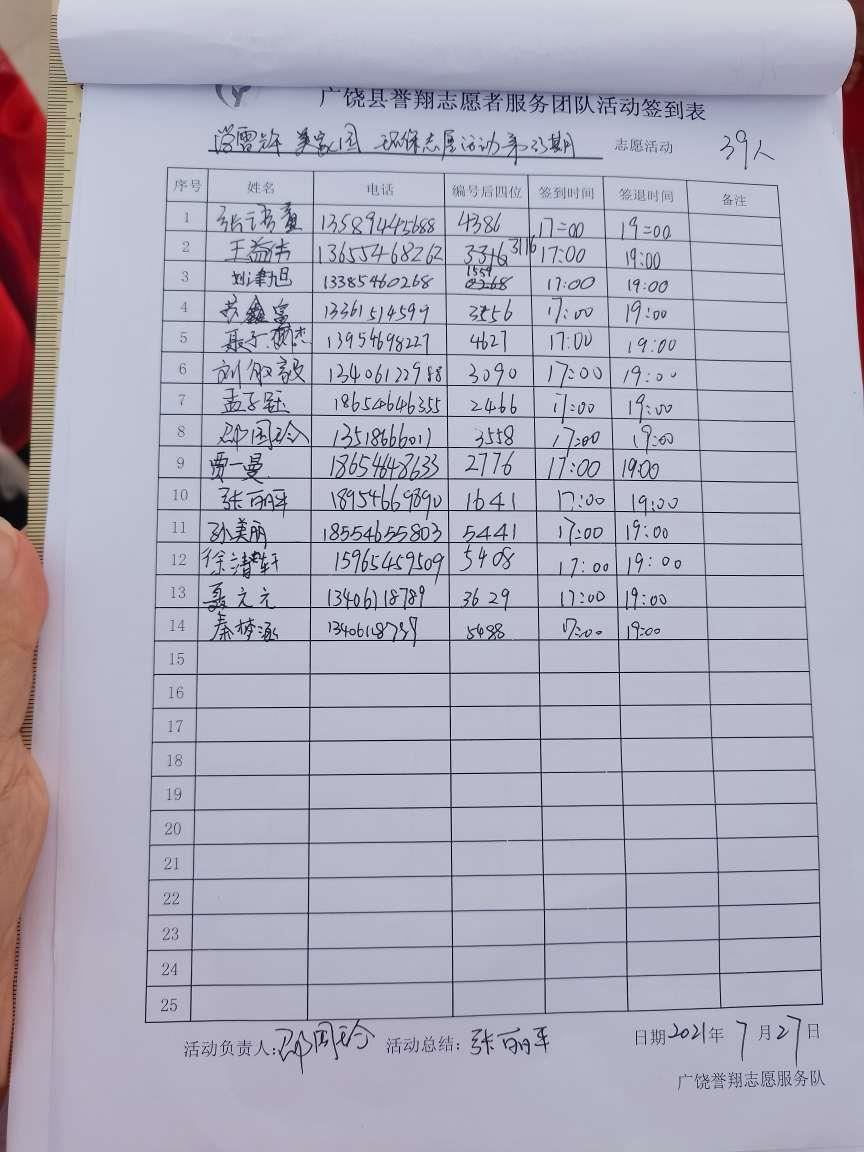 广饶县誉翔志愿者服务团队活动签到表
学雷锋 美家园 环保志愿活动第23期 志愿活动 39人
序号 姓名 电话 编号后四位 签到时间 签退时间 备注
1 13589445688 4386 17:00 19:00
2 王益伟 13655468262 3316 3116 17:00 19:00
3 刘津旭 13385460268 1559 17:00 19:00
4 鑫富 13361514599 3556 17:00 19:00
5 聂子杰 13954698227 4627 17:00 19:00
6 刘毅 13406122988 3090 17:00 19:00
7 孟子钰 18654646355 2466 17:00 19:00
8 邵国玲 13518666011 3558 17:00 19:00
9 贾一曼 18654648633 2776 17:00 19:00
10 张丽平 18954669890 1641 17:00 19:00
11 孙美丽 18554655803 5441 17:00 19:00
12 徐清轩 15965459509 5408 17:00 19:00
13 聂文元 13406118789 3629 17:00 19:00
14 秦梦涵 13406118789 5488 17:00 19:00
15
16
17
18
19
20
21
22
23
24
25
活动负责人:邵国玲 活动总结:张丽平 日期2021年7月27日
广饶誉翔志愿服务队